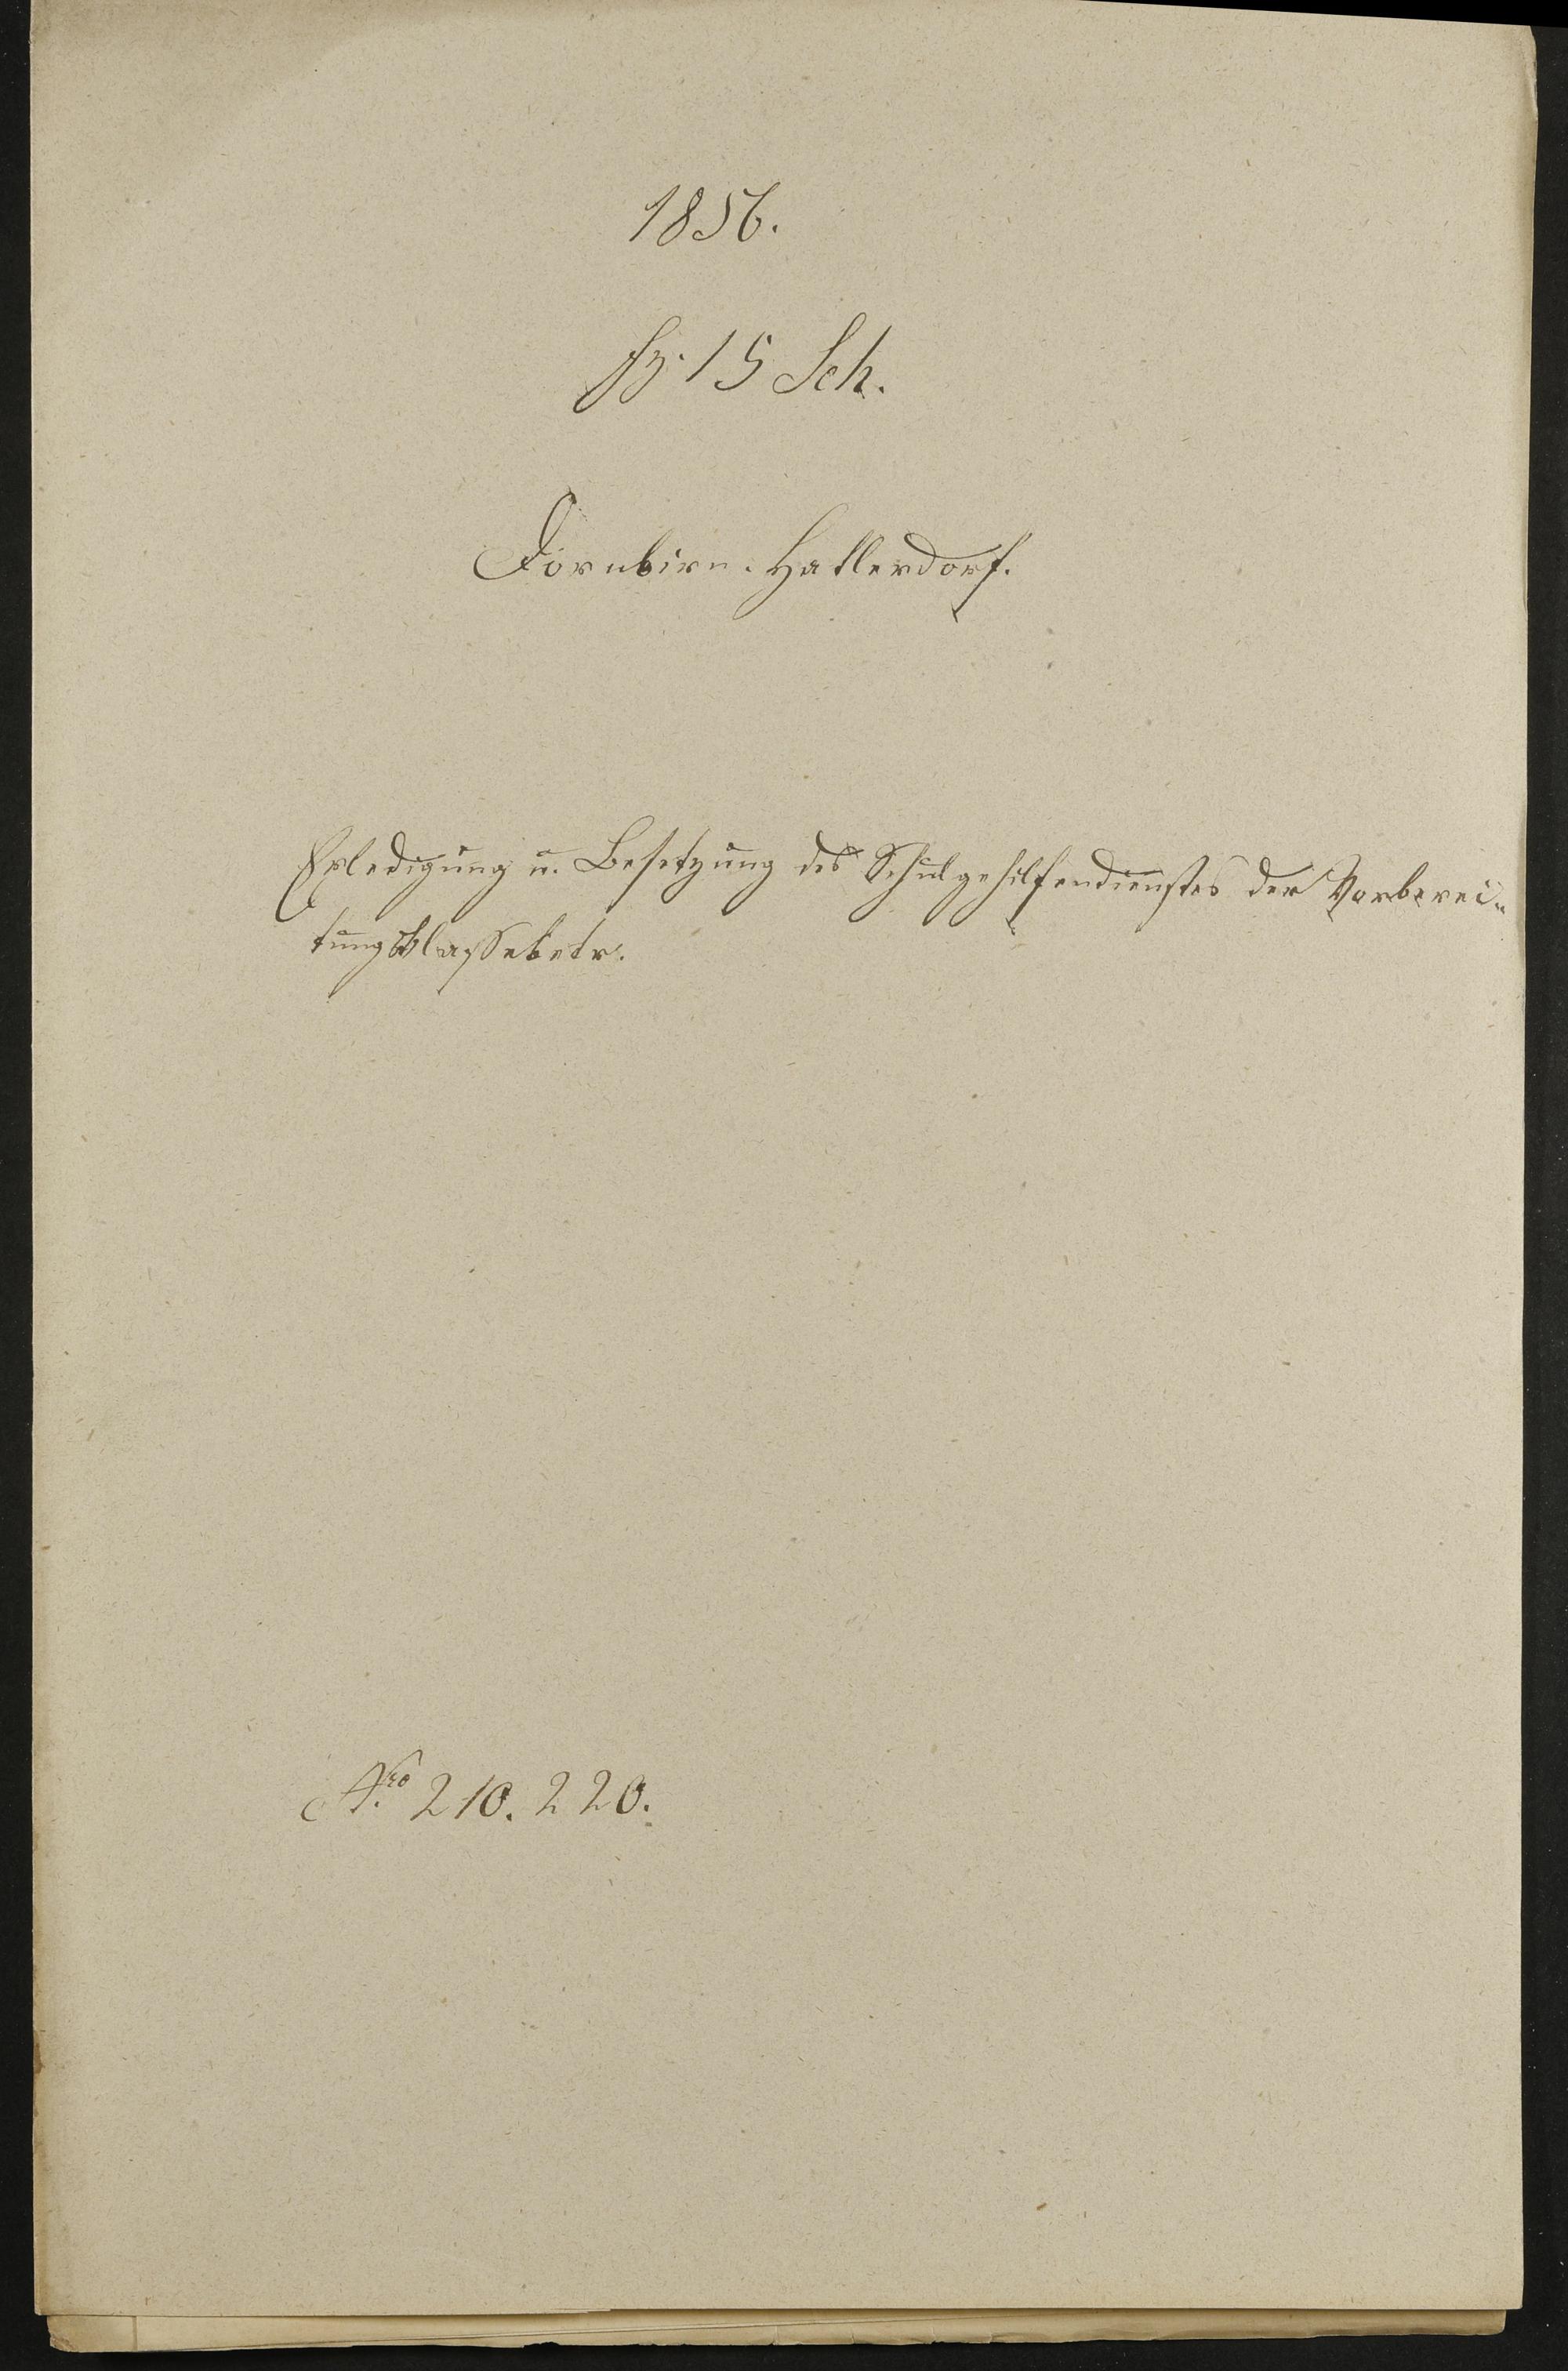 1856.
fz. 15 Sch.
Dornbirn. Hatlerdorf.
Erledigung u. Besetzung des Schulgehilfendienstes der Vorberei„
tungsklasse betr.
Nro 210. 220.